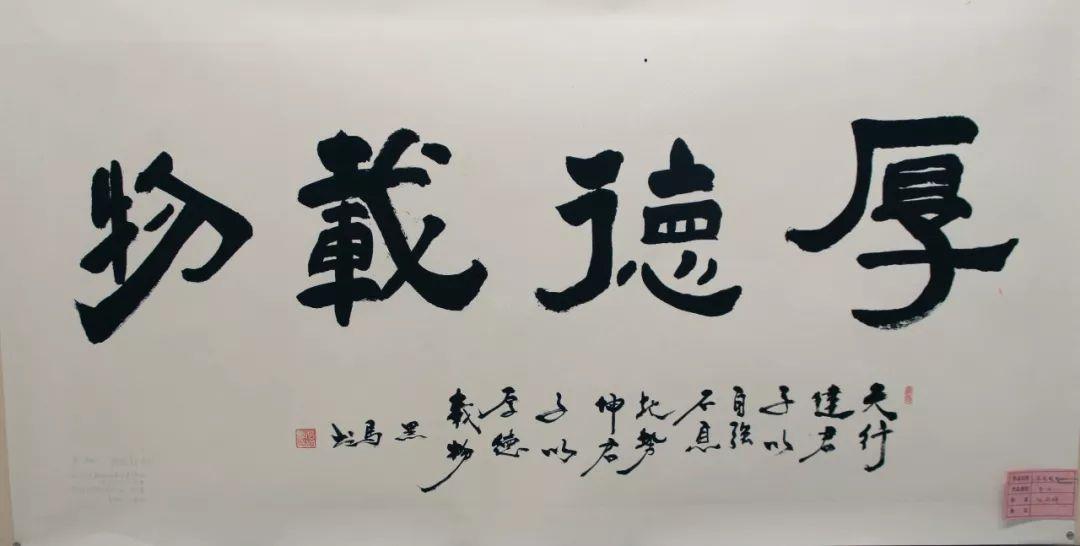 厚德載物
天行
健君
子以
自強
不息
地勢
坤君
子以
厚德
載物
黑馬書